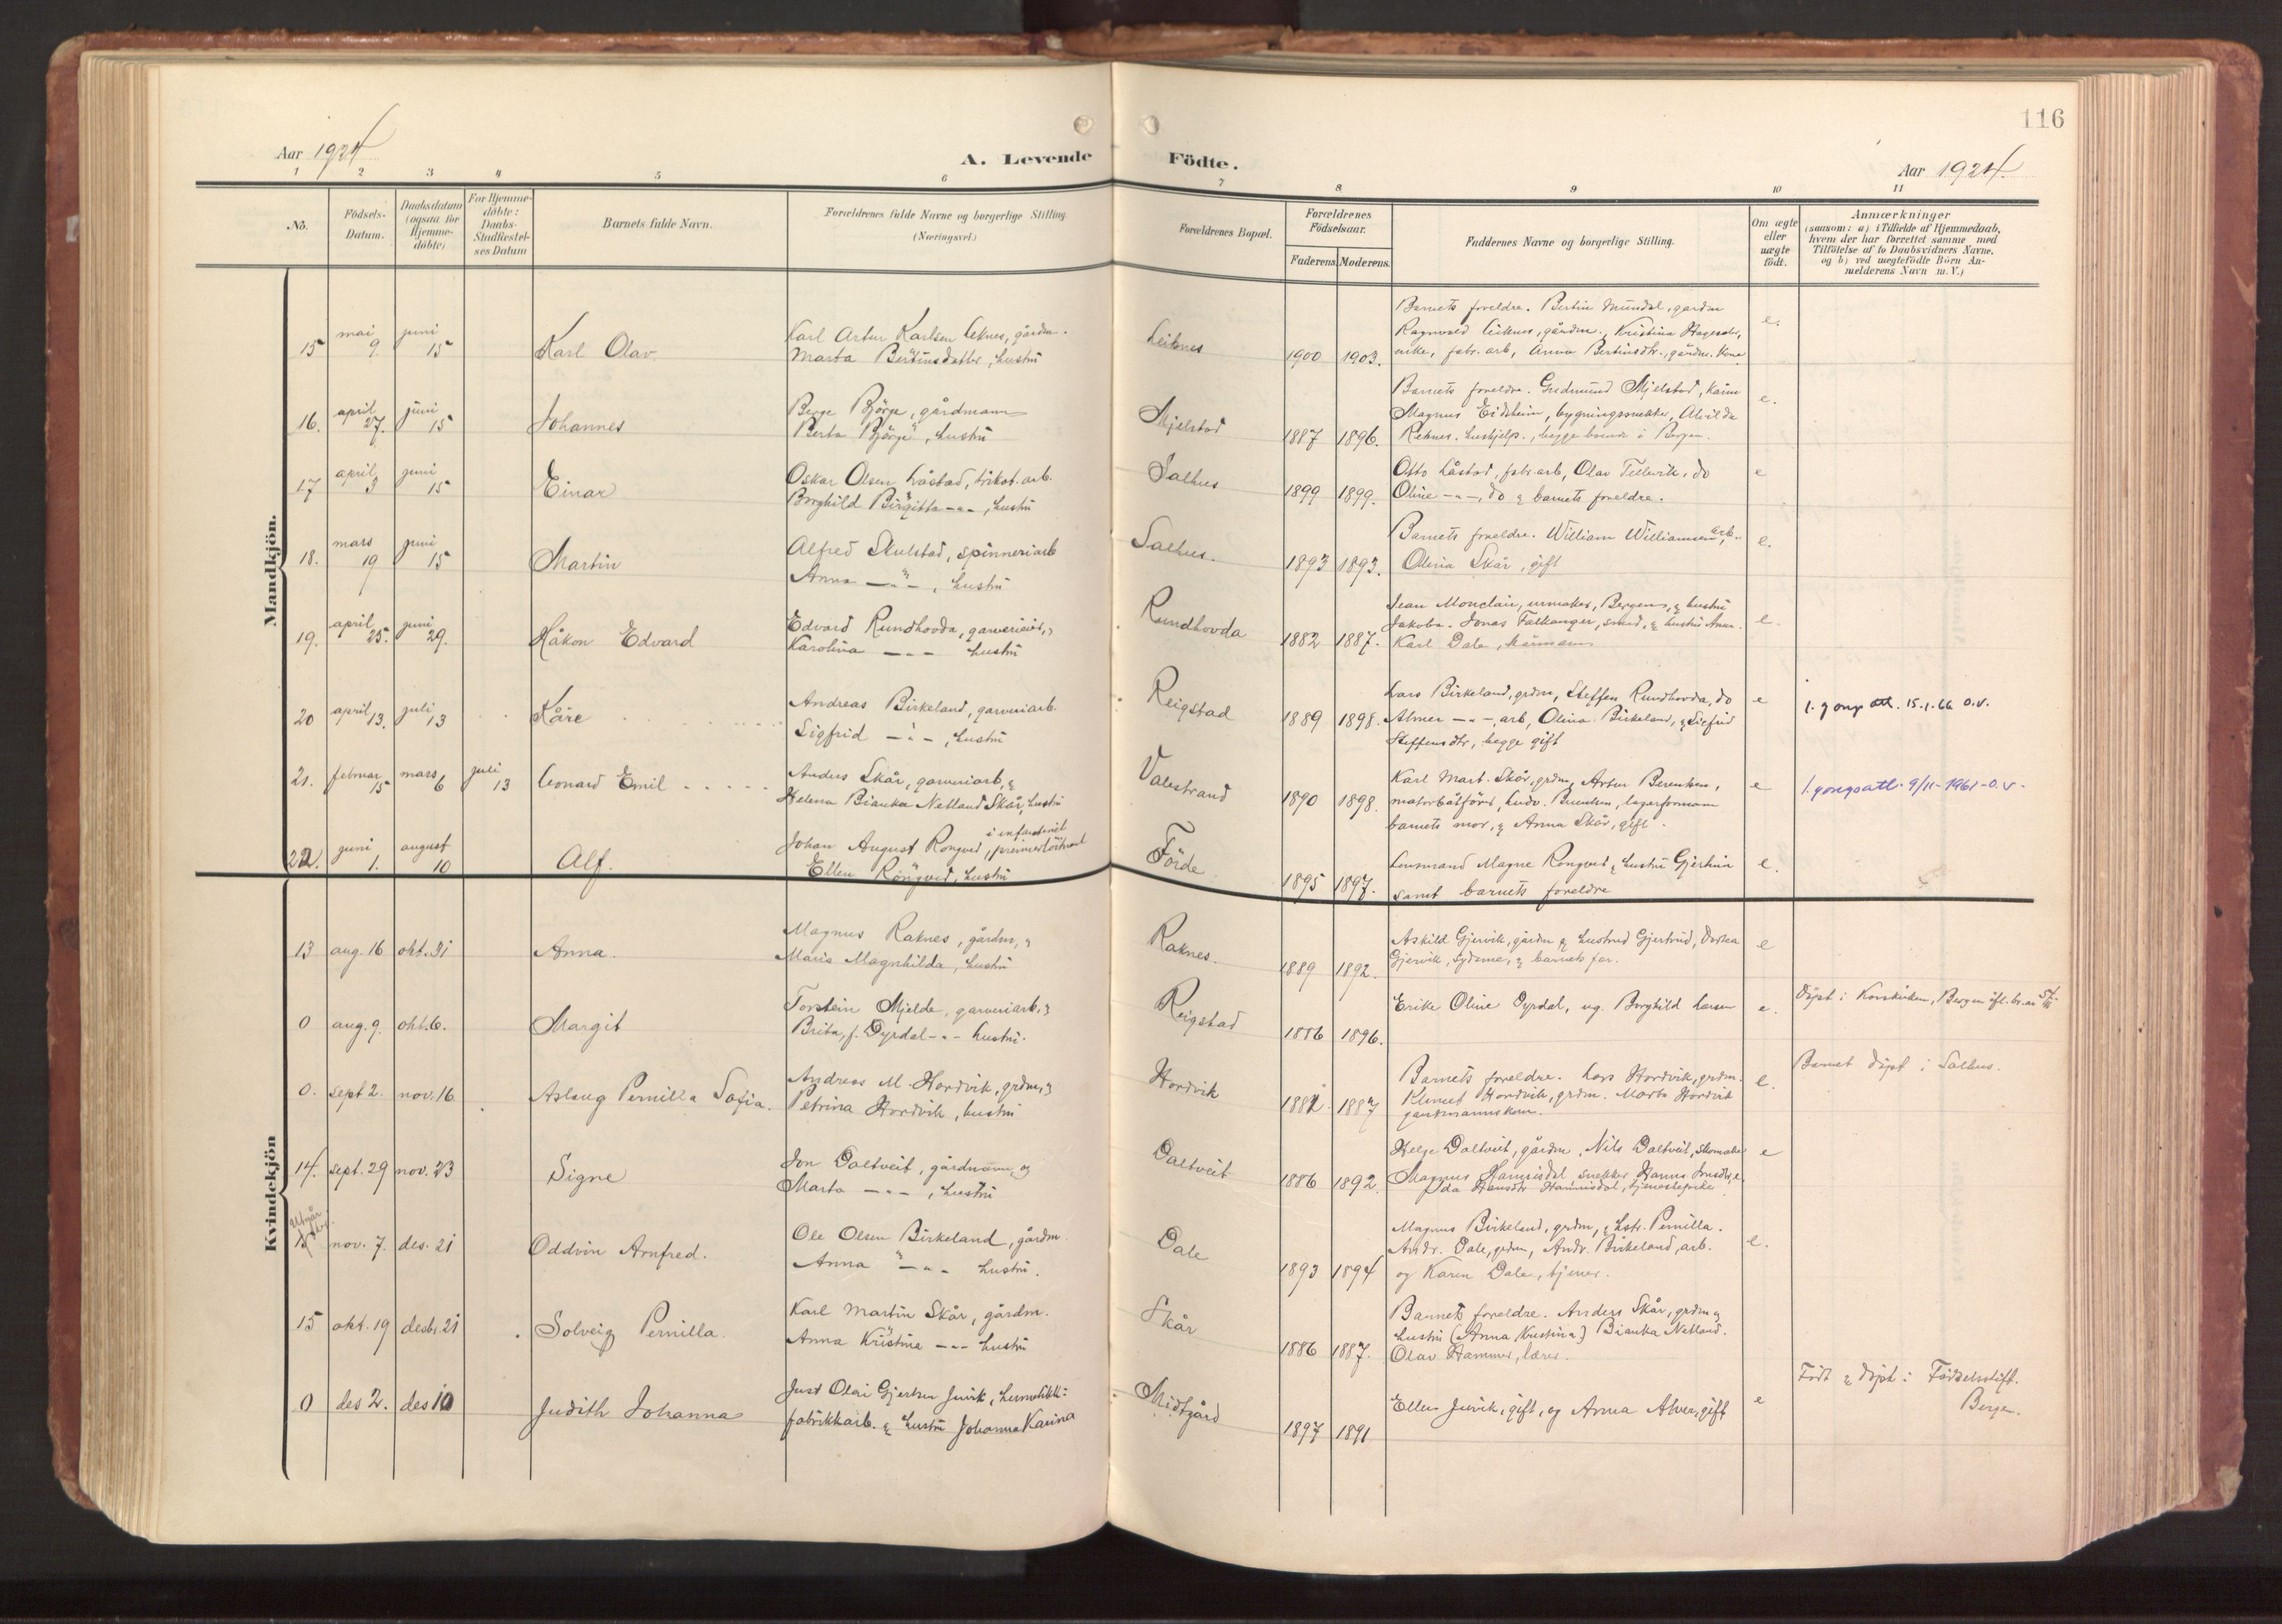 116
Aar 1924
A. Levende
Födte.
Aar 1924.
1 2 3 4 5 6 7 8 9 10 11
No.
Födsels-Datum.
Daabsdatum (ogsaa for Hjemme-döbte)
For Hjemme-döbte: Daabs-Stadfestel-ses Datum
Barnets fulde Navn.
Forældrenes fulde Navne og borgerlige Stilling. (Næringsvei)
Forældrenes Bopæl.
Forældrenes Födselsaar.
Faderens. Moderens.
Faddernes Navne og borgerlige Stilling.
Om ægte eller uægte födt.
Anmærkninger
(saasom: a) i Tilfælde af Hjemmedaab, hvem der har forrettet samme med Tilföielse af to Daabsvidners Navne. og b) ved uægtefödte Börn An-melderens Navn m. V.)
Mandkjön.
15 mai 9. juni 15 Karl Olav. Karl Artur Karlsen Leknes, gårdm. Leiknes 1900 1903. Barnets foreldre. Bertin Mundal, gardm e.
Marta Bertinsdatter, hustru Ragnvald Leiknes, gårdm., Kristina
enke, fabr. arb, Anna Bertinsdtr., gårdm. kone
16. april 27. juni 15 Johannes Berge Björge, gårdmann Mjelstad 1887 1896. Barnets foreldre. Gudmund Mjelstad, e.
Berta Björge, hustru Magnus Eidsheim, bygningssnekker, Alvilda
Reknes. hushjelp., begge i Bergen.
17 april 3 juni 15 Einar Oskar Olsen Låstad, trikot. arb. Salhus 1899 1899. Otto Låstad, fabr arb, Olav Tellevik, do e
Borghild Birgitta -"-, hustru Oline -"-, do & barnets foreldre.
18. mars 19 juni 15 Martin Alfred Skulstad, spinneriarb Salhus. 1893 1893. Barnets foreldre. William Williamsen arb. e.
Anna -"-, hustru Olina Skår, gift
19. april 25. juni 29. Håkon Edvard Edvard Rundhovda, garverieier, & Rundhovda 1882 1887. Jean Monclair, urmaker, Bergen, & hustru e.
Karolina -"- hustru Jakoba. Jonas Falkanger, smed, & hustru Anna.
Karl Dale,
20 april 13. juli 13 Kåre Andreas Birkeland, garveriarb. Reigstad 1889 1898. Lars Birkeland, grdm, Steffen Rundhovda, do e 1. gong att. 15.1.66 O.V.
Sigfrid -"-, hustru Almer -"-, arb, Olina Birkeland, & Sigfrid
Steffensdtr, begge gift
21. februar 15 mars 6 juli 13 Leonard Emil Anders Skår, garveriarb, & Valestrand 1890 1898. Karl Mart. Skår, grdm, Artur Berentsen, e 1. gongs att. 9/11-1961-O.V.
Helena Bianka Netland Skår, hustru motorbåtförer, Ludv. Berentsen, lagerformann
barnets mor, & Anna Skår, gift.
22. juni 1. august 10 Alf. Johan August Rongved, premierlöitnant i infanteriet Förde 1895 1897. Lensmand Magne Rongved & hustru Gjertina e.
Ellen Rongved, hustru samt barnets foreldre
Kvindekjön
13 aug. 16 okt. 31 Anna. Magnus Raknes, gårdm, & Raknes. 1889 1892. Askild Gjervik, gårdm & hustrud Gjertrud, Dortea e
Maria Magnhilda, hustru Gjervik, syderne, & barnets far.
0 aug. 9. okt. 6. Margit Torstein Mjelde, garveriarb, & Reigstad 1886 1896. Erike Oline Dyrdal, ug. Borghild Larsen e. Döpt i Korskirken, Bergen ifl. br. av
Brita, f. Dyrdal -"- hustru.
0. sept 2. nov. 16 Aslaug Pernilla Sofia. Andreas M. Hordvik, grdm, & Hordvik 1881 1887 Barnets foreldre. Lars Hordvik, grdm. e. Barnet döpt i Salhus.
Petrina Hordvik, hustru Klemet Hordvik, grdm. Marta Hordvik
14. sept. 29 nov. 23 Signe Jon Daltveit, gårdmann, og Daltveit 1886 1892. Helge Daltveit, gårdm, Nils Daltveit, skomaker e
Marta -"-, hustru Magnus Hannisdal, snekker, Hanna Jonsdtr, e.
Ida Hansdtr Hannisdal, tjenestepike
Utgår
15 nov. 7. des. 21 Oddvin Arnfred. Ole Olsen Birkeland, gårdm. Dale 1893 1894 Magnus Birkeland, grdm, & hstr. Pernilla. e.
Anna -"- hustru. Andr. Dale, grdm, Andr. Birkeland, arb.
og Karen Dale, tjener.
15 okt. 19 desbr. 21 Solveig Pernilla. Karl Martin Skår, gårdm. Skår 1886 1887. Barnets foreldre. Anders Skår, grdm &
Anna Kristina -"- hustru hustru (Anna Kristina) Bianka Netland.
Olav Hammer, lærer.
0 des 2. des 10 Judith Johanna Just Olai Gjertsen Juvik, hermetikk- Midtgård 1897 1891 Ellen Juvik, gift, og Anna Alver, gift e Födt & döpt i Födselsstift.
fabrikkarb. & hustru Johanna Karina Bergen.